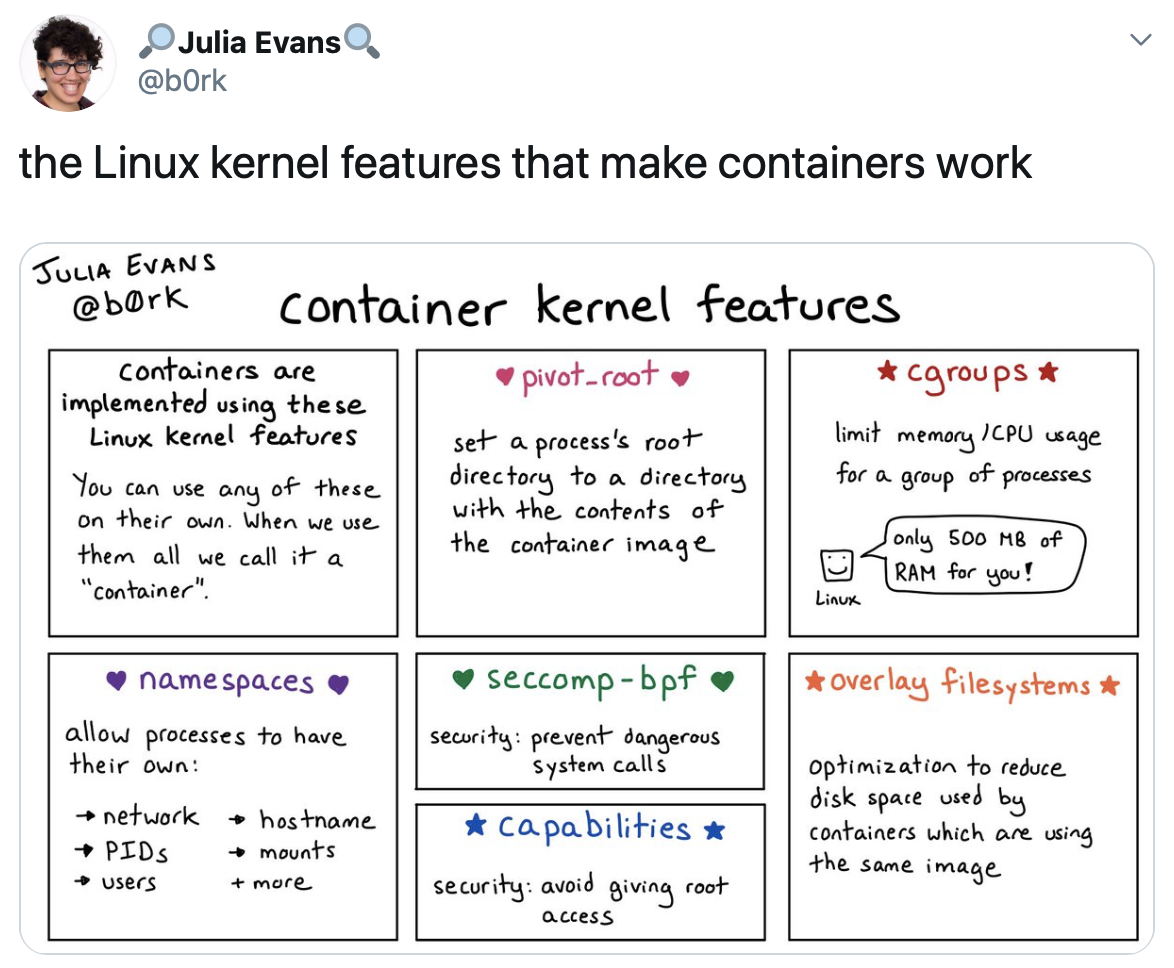 🔎Julia Evans🔍
@b0rk
the Linux kernel features that make containers work
JULIA EVANS
@b0rk
container kernel features
containers are
implemented using these
Linux kernel features
You can use any of these
on their own. When we use
them all we call it a
"container".
♥ pivot_root ♥
set a process's root
directory to a directory
with the contents of
the container image
★ cgroups ★
limit memory/CPU usage
for a group of processes
only 500 MB of
RAM for you!
Linux
♥ namespaces ♥
allow processes to have
their own:
→ network → hostname
→ PIDs → mounts
→ users + more
♥ seccomp-bpf ♥
security: prevent dangerous
system calls
★ capabilities ★
security: avoid giving root
access
★ overlay filesystems ★
optimization to reduce
disk space used by
containers which are using
the same image